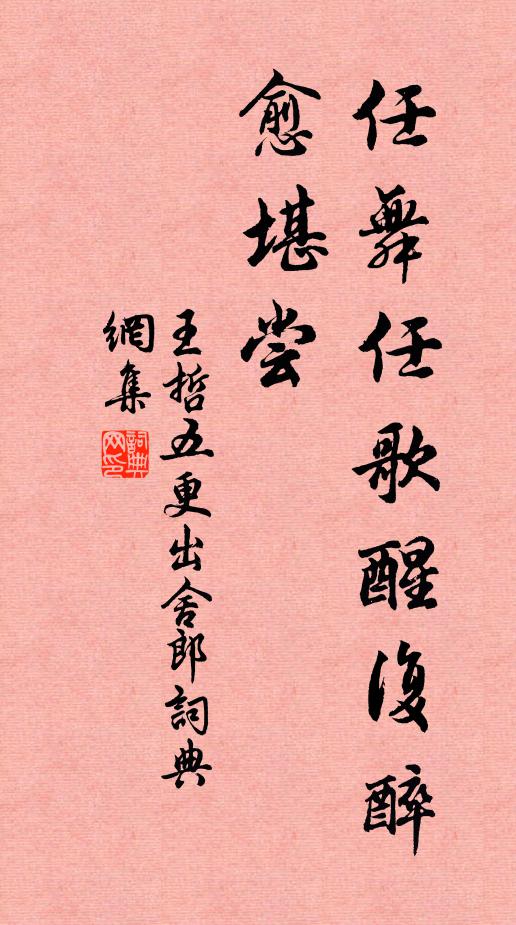 任舞任歌醒復醉
愈堪尝
王哲五更出舍郎詞典
網集
詞典网印